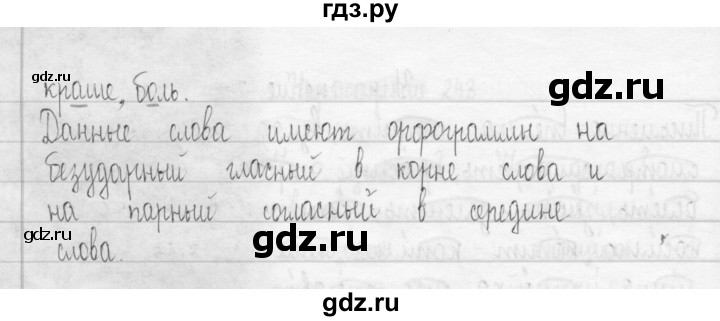 гдз.ру
краше, боль.
gdz.ru
gdz.ru
Данные слова имеют орфограммы на
безударный гласный в корне слова и
на парный согласный в середине
gdz.ru
gdz.ru
слова.
gdz.ru